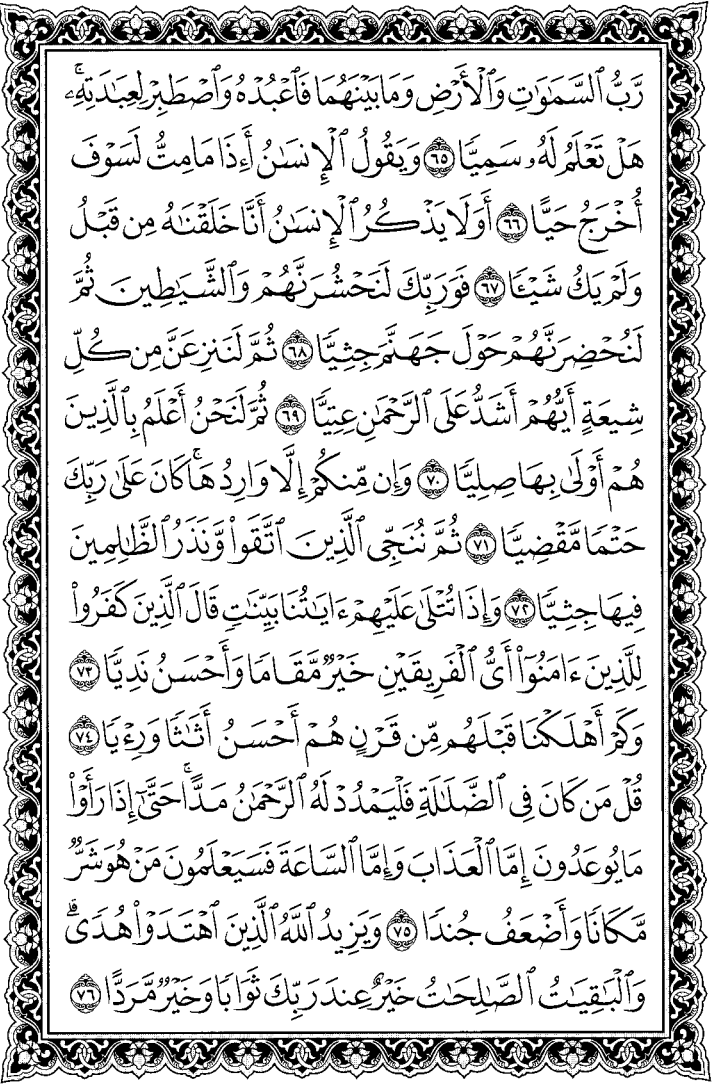 رَّبُّ ٱلسَّمَـٰوَٰتِ وَٱلۡأَرۡضِ وَمَا بَيۡنَهُمَا فَٱعۡبُدۡهُ وَٱصۡطَبِرۡ لِعِبَـٰدَتِهِۦۚ
هَلۡ تَعۡلَمُ لَهُۥ سَمِيّٗا ٦٥ وَيَقُولُ ٱلۡإِنسَـٰنُ أَءِذَا مَا مِتُّ لَسَوۡفَ
أُخۡرَجُ حَيًّا ٦٦ أَوَلَا يَذۡكُرُ ٱلۡإِنسَـٰنُ أَنَّا خَلَقۡنَـٰهُ مِن قَبۡلُ
وَلَمۡ يَكُ شَيۡـٔٗا ٦٧ فَوَرَبِّكَ لَنَحۡشُرَنَّهُمۡ وَٱلشَّيَـٰطِينَ ثُمَّ
لَنُحۡضِرَنَّهُمۡ حَوۡلَ جَهَنَّمَ جِثِيّٗا ٦٨ ثُمَّ لَنَنزِعَنَّ مِن كُلِّ
شِيعَةٍ أَيُّهُمۡ أَشَدُّ عَلَى ٱلرَّحۡمَـٰنِ عِتِيّٗا ٦٩ ثُمَّ لَنَحۡنُ أَعۡلَمُ بِٱلَّذِينَ
هُمۡ أَوۡلَىٰ بِهَا صِلِيّٗا ٧٠ وَإِن مِّنكُمۡ إِلَّا وَارِدُهَاۚ كَانَ عَلَىٰ رَبِّكَ
حَتۡمٗا مَّقۡضِيّٗا ٧١ ثُمَّ نُنَجِّى ٱلَّذِينَ ٱتَّقَواْ وَّنَذَرُ ٱلظَّـٰلِمِينَ
فِيهَا جِثِيّٗا ٧٢ وَإِذَا تُتۡلَىٰ عَلَيۡهِمۡ ءَايَـٰتُنَا بَيِّنَـٰتٖ قَالَ ٱلَّذِينَ كَفَرُواْ
لِلَّذِينَ ءَامَنُوٓاْ أَىُّ ٱلۡفَرِيقَيۡنِ خَيۡرٞ مَّقَامٗا وَأَحۡسَنُ نَدِيّٗا ٧٣
وَكَمۡ أَهۡلَكۡنَا قَبۡلَهُم مِّن قَرۡنٍ هُمۡ أَحۡسَنُ أَثَـٰثٗا وَرِءۡيٗا ٧٤
قُلۡ مَن كَانَ فِى ٱلضَّلَـٰلَةِ فَلۡيَمۡدُدۡ لَهُ ٱلرَّحۡمَـٰنُ مَدًّاۚ حَتَّىٰٓ إِذَا رَأَوۡاْ
مَا يُوعَدُونَ إِمَّا ٱلۡعَذَابَ وَإِمَّا ٱلسَّاعَةَ فَسَيَعۡلَمُونَ مَنۡ هُوَ شَرّٞ
مَّكَانٗا وَأَضۡعَفُ جُندٗا ٧٥ وَيَزِيدُ ٱللَّهُ ٱلَّذِينَ ٱهۡتَدَوۡاْ هُدٗىۗ
وَٱلۡبَـٰقِيَـٰتُ ٱلصَّـٰلِحَـٰتُ خَيۡرٌ عِندَ رَبِّكَ ثَوَابٗا وَخَيۡرٞ مَّرَدًّا ٧٦